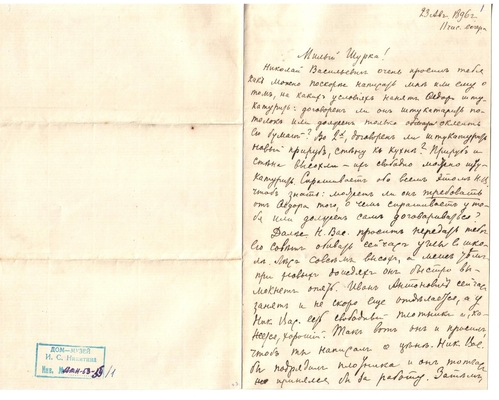 23 Авг. 1896 г.
11 час. вечера
Милый Шурка!
Николай Васильевич очень просит тебя
как можно поскорее написать мне или ему о
том, на каких условиях нанят Федор штукатур
катурить: договорен ли он штукатурить по-
толоки или должен только оклеить
бумагой? Во 2х, договорен ли штукатурить
новый прируб, стену в кухне? Прируб и
стена высохли — их свободно можно шту-
катурить. Спрашивает обо всем этом Н.В.
чтоб знать: может ли он требовать
от Федора того, о чем спрашивает у те-
бя или должен сам договариваться?
Далее Н. Вас. просит передать тебе
его совет обивать сейчас же в шко-
ла. Мох совсем высох, а
при новых дождях он быстро вы-
мокнет опять. Иван Антонович сейчас
занят и не скоро еще отделается, а у
Ник. Вас. есть свободный плотник и, ка-
жется, хороший. Так вот он и просит,
чтоб ты написал о цене. Ник. Вас.
бы подрядил плотника и он тотчас
же принялся бы за работу. Затем,
ДОМ-МУЗЕЙ
И. С. Никитина
Инв. №